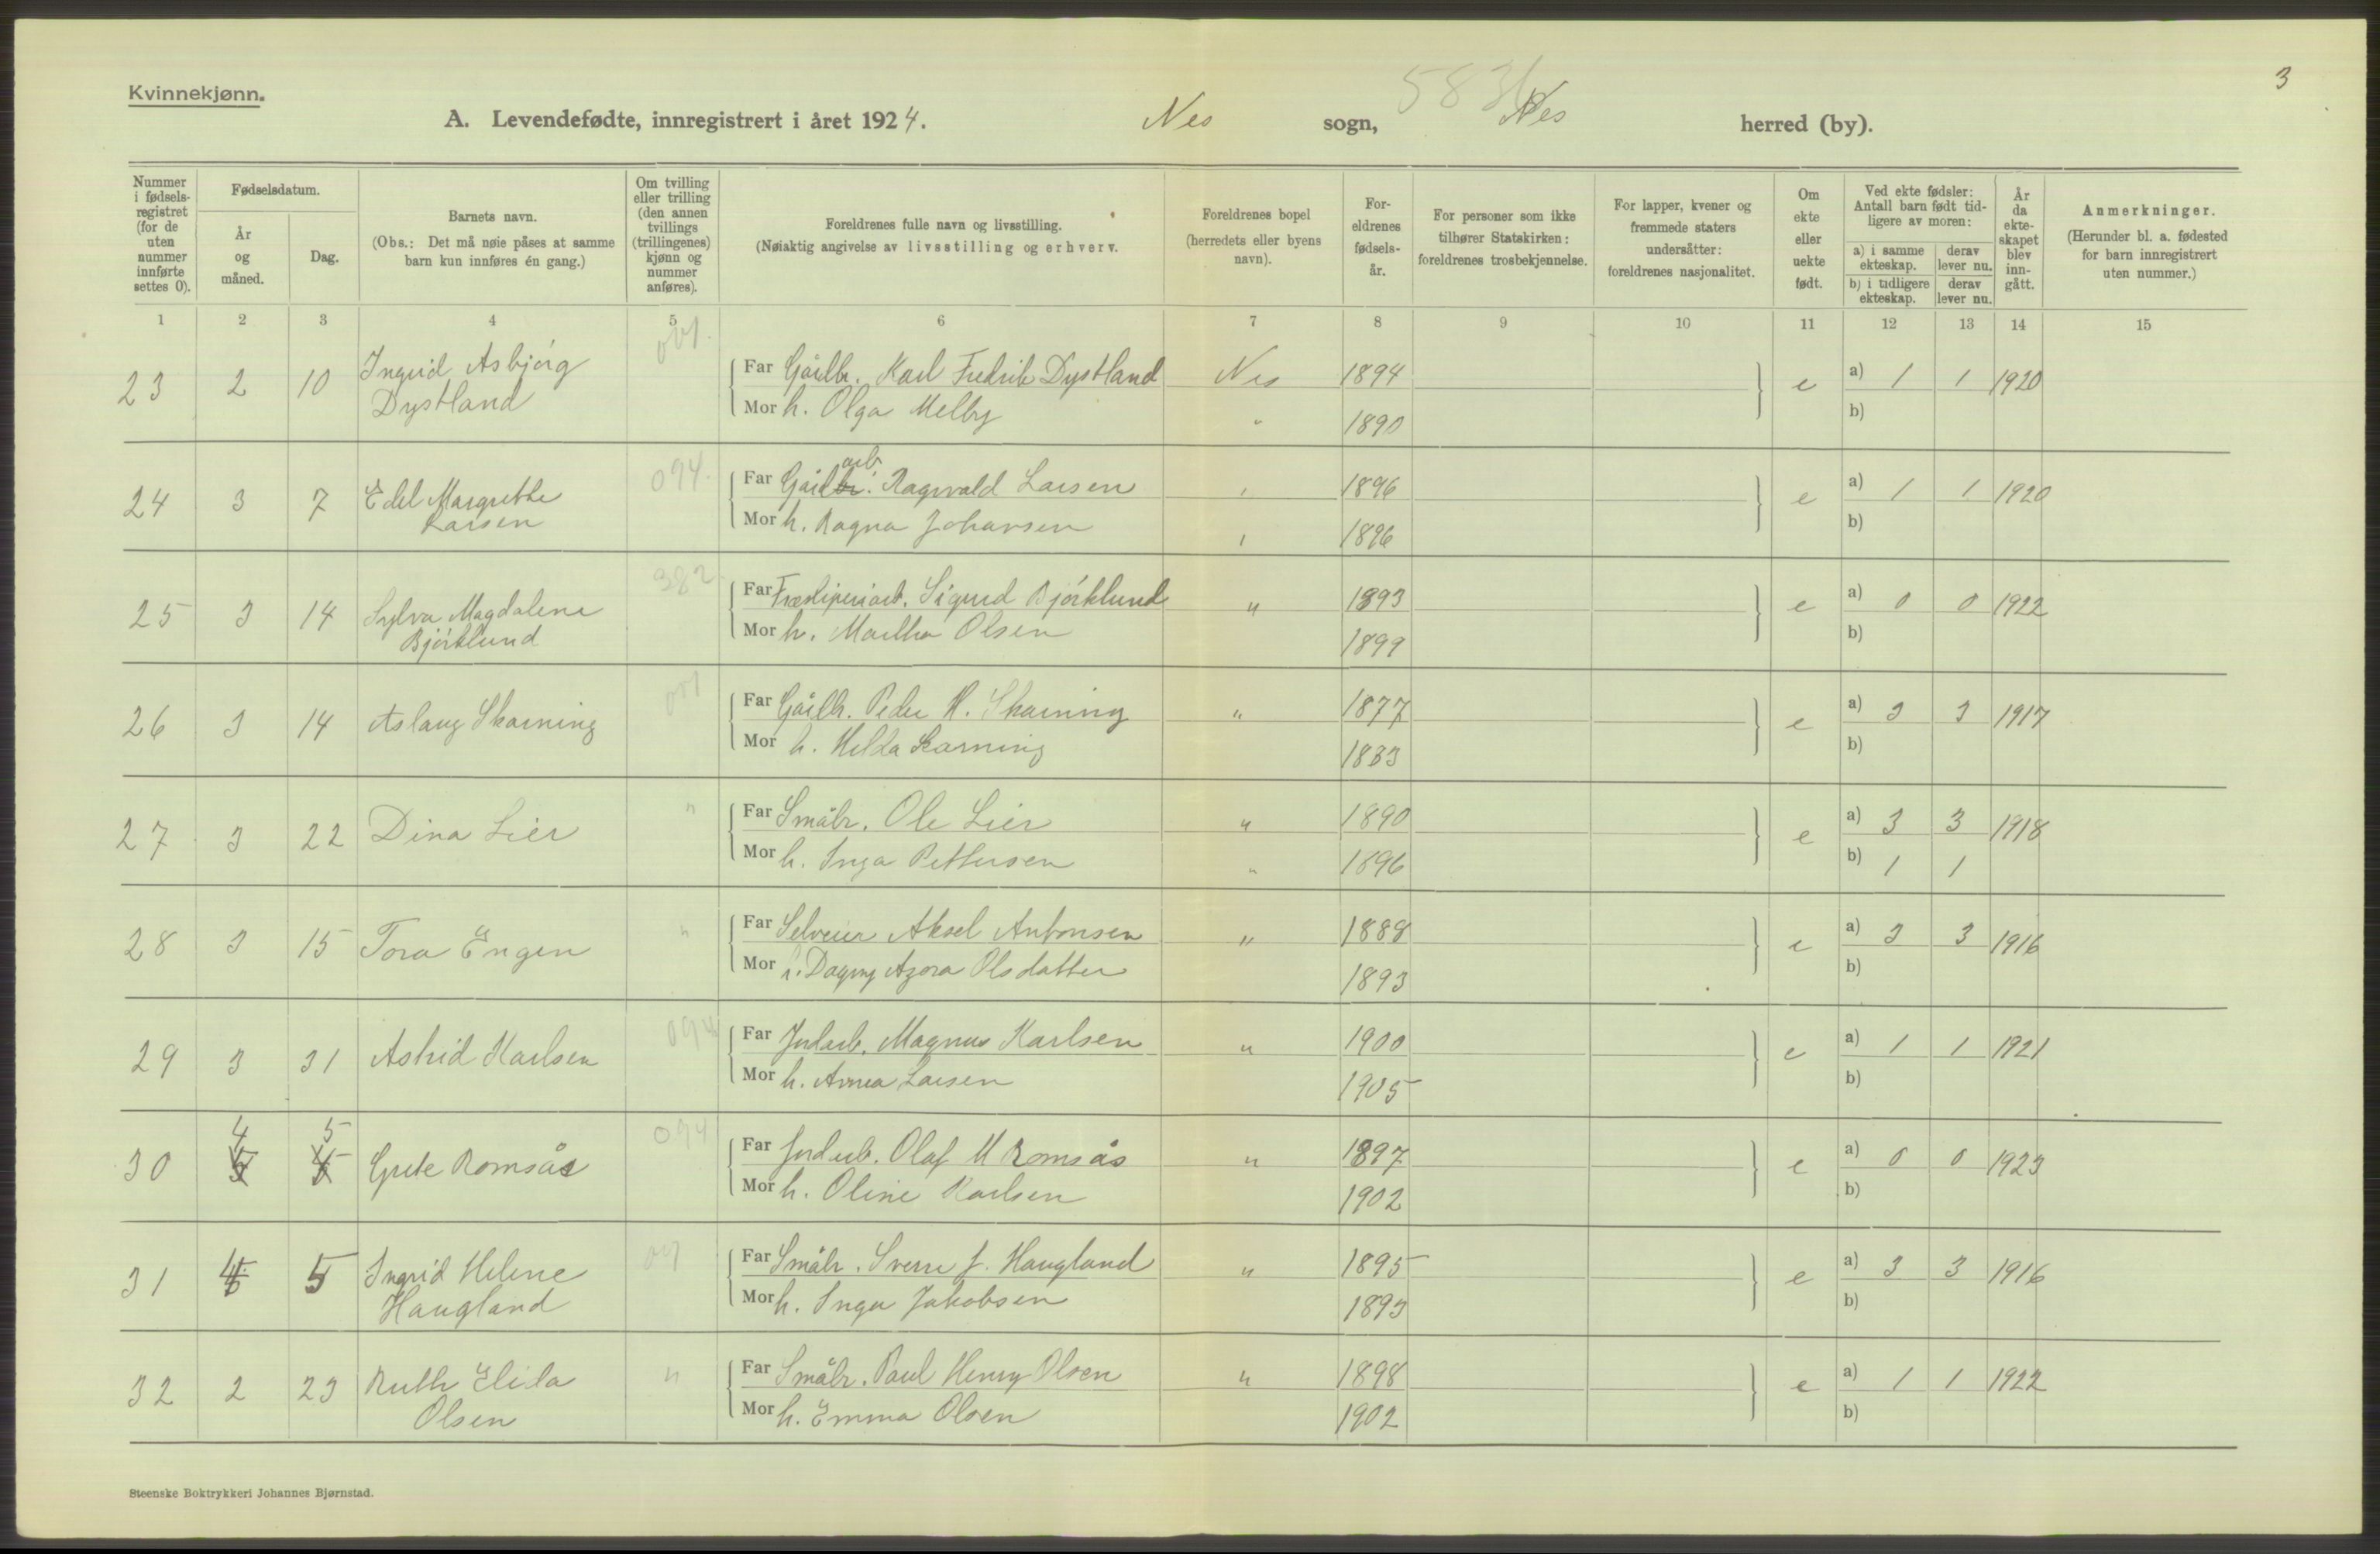 3
Kvinnekjønn.
A. Levendefødte, innregistrert i året 1924. Nes sogn, Nes herred (by).
Nummer i fødselsregistret (for de uten nummer innførte settes 0).
Fødselsdatum.
År og måned.
Dag.
Barnets navn.
(Obs.: Det må nøie påses at samme barn kun innføres én gang.)
Om tvilling eller trilling (den annen tvillings (trillingenes) kjønn og nummer anføres).
Foreldrenes fulle navn og livsstilling.
(Nøiaktig angivelse av livsstilling og erhverv.
Foreldrenes bopel (herredets eller byens navn).
Foreldrenes fødselsår.
For personer som ikke tilhører Statskirken: foreldrenes trosbekjennelse.
For lapper, kvener og fremmede staters undersåtter: foreldrenes nasjonalitet.
Om ekte eller uekte født.
Ved ekte fødsler: Antall barn født tidligere av moren:
a) i samme ekteskap. derav lever nu.
b) i tidligere ekteskap. derav lever nu.
År da ekteskapet blev inngått.
Anmerkninger.
(Herunder bl. a. fødested for barn innregistrert uten nummer.)
1 2 3 4 5 6 7 8 9 10 11 12 13 14 15
23 2 10 Ingrid Asbjörg Dystland Far Gårdbr. Karl Fredrik Dystland Nes 1894 e a) 1 1 1920
Mor h. Olga Melby " 1890 b)
24 3 7 Edel Margrethe Larsen 094 Far Gårdarb. Ragnvald Larsen " 1896 e a) 1 1 1920
Mor h. Ragna Johansen " 1896 b)
25 3 14 Sylva Magdalene Björklund 382 Far Sigurd Björklund " 1893 e a) 0 0 1922
Mor h. Martha Olsen 1899 b)
26 3 14 Aslaug Skarning Far Gårdb. Peder H. Skarning " 1877 e a) 3 3 1917
Mor h. Helda Skarning 1883 b)
27 3 22 Dina Lier " Far Småbr. Ole Lier " 1890 e a) 3 3 1918
Mor h. Inga Pettersen " 1896 b) 1 1
28 3 15 Tora Engen " Far Selveier Aksel Antonsen " 1888 e a) 3 3 1916
Mor h. Dagny Agora Olsdatter 1893 b)
29 3 31 Astrid Karlsen 094 Far Jordarb. Magnus Karlsen " 1900 e a) 1 1 1921
Mor h. Anna Larsen 1905 b)
30 4 5 Grete Romsås 094 Far Jordarb. Olaf M Romsås " 1897 e a) 0 0 1923
Mor h. Oline Karlsen 1902 b)
31 4 5 Ingrid Helene Haugland Far Småbr. Sverre J. Haugland " 1895 e a) 3 3 1916
Mor h. Inga Jakobsen 1893 b)
32 2 23 Ruth Elida Olsen " Far Småbr. Paul Henry Olsen " 1898 e a) 1 1 1922
Mor h. Emma Olsen 1902 b)
Steenske Boktrykkeri Johannes Bjørnstad.